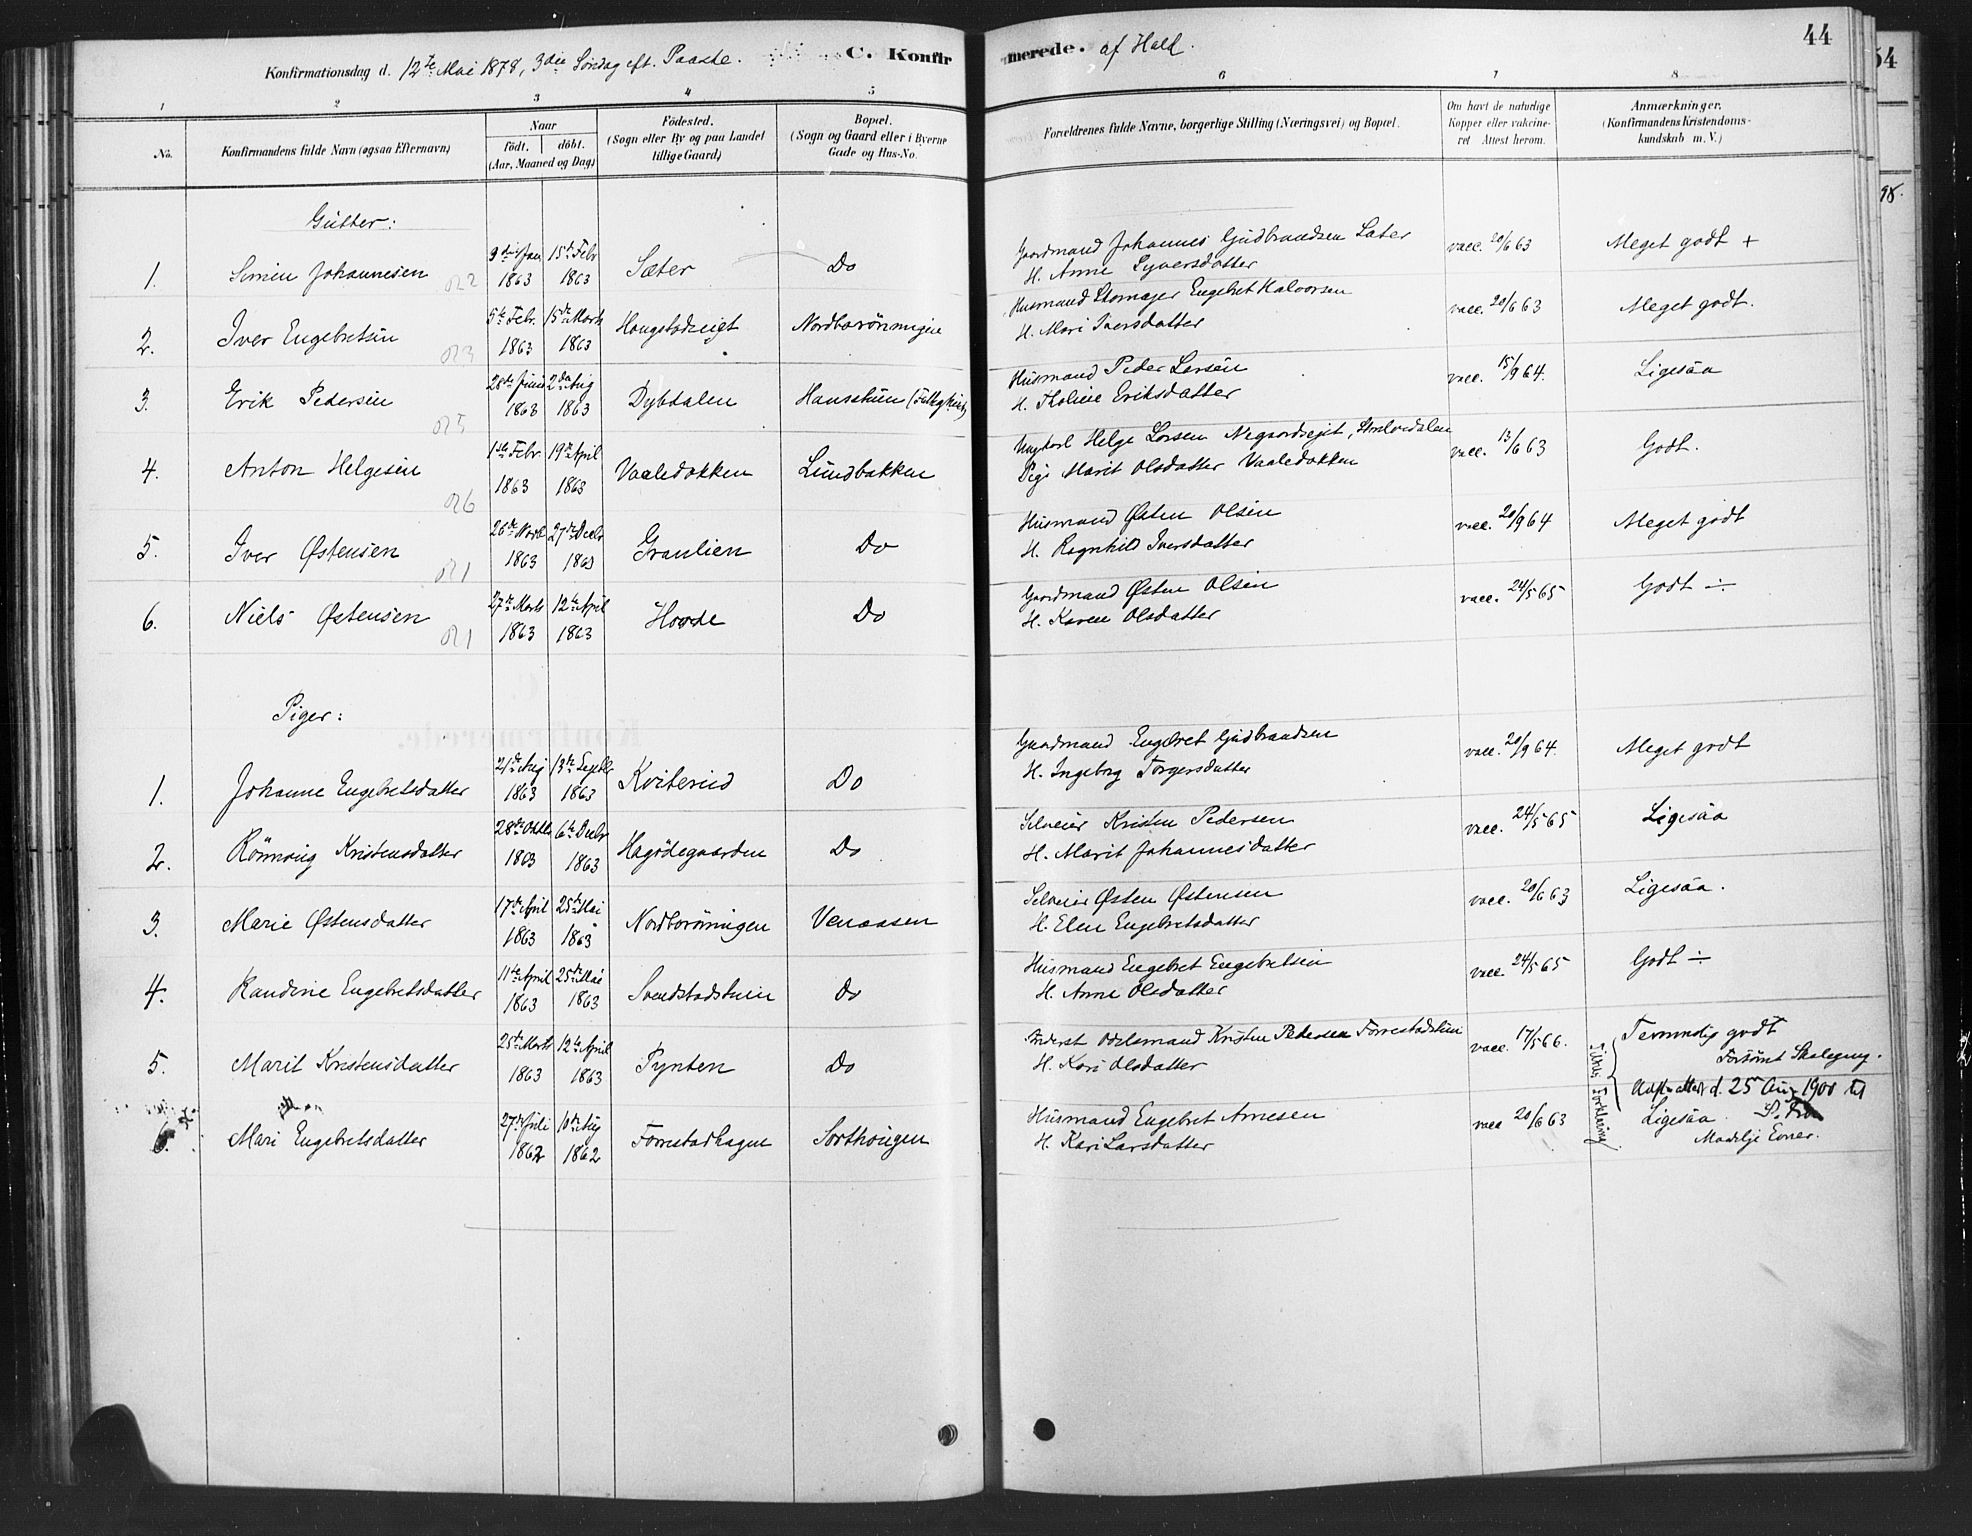 44
54
98.
Konfirmationsdag d. 12te Mai 1878, 3die Søndag eft. Paaske. C. Konfirmerede. af Hold.
1 2 3 4 5 6 7 8
No. Konfirmandens fulde Navn (ogsaa Efternavn) Naar født. døbt. (Aar, Maaned og Dag) Fødested. (Sogn eller By og paa Landet tillige Gaard) Bopæl. (Sogn og Gaard eller i Byerne Gade og Hus-No. Forældrenes fulde Navne, borgerlige Stilling (Næringsvei) og Bopæl. Om havt de naturlige Kopper eller vakcineret Attest herom. Anmærkninger. (Konfirmandens Kristendomskundskab m. V.)
Gutter:
1. Simen Johannesen 9de Jan 1863 15de Febr 1863 Sæter Do Gaardmand Johannes Gudbrandsen Sæter H. Anne Syversdatter vacc. 20/6 63 Meget godt +
2. Iver Engebretsen 5te Febr. 1863 15de Marts 1863 Nordborønningen Husmand Engebret Halvorsen H. Mari Iversdatter vacc. 20/6 63 Meget godt.
3. Erik Pedersen 28de Juni 1863 2den Aug 1863 Dybdalen Husmand Peder Larsen H. Eriksdatter vacc. 15/9 64. Ligesaa
4. Anton Helgesen 1ste Febr 1863 19de April 1863 Vaaledokken Lundbakken Ungkarl Helge Larsen Pige Marit Olsdatter Vaaledokken vacc. 13/6 63 Godt.
5. Iver Østensen 26de 1863 27de Decbr 1863 Granlien Do Husmand Østen Olsen H. Ragnhild Iversdatter vacc. 20/9 64 Meget godt
6. Niels Østensen 27de Marts 1863 12te April 1863 Hovde Do Gaardmand Østen Olsen H. Karen Olsdatter vacc. 24/5 65 Godt ÷
Piger:
1. Johanne Engebretsdatter 21de Aug 1863 13de Septbr 1863 Kviterud Do Gaardmand Engebret Gudbrandsen H. Ingeborg Torgersdatter vacc. 20/9 64. Meget godt
2. Rønnaug Kristensdatter 28de Oktbr 1863 6te Decbr 1863 Hagødegaarden Do Selveier Kristen Pedersen H. Marit Johannesdatter vacc. 24/5 65 Ligesaa
3. Marie Østensdatter 17de April 1863 25de Mai 1863 Nordborønningen Venaasen Selveier Østen Østensen H. Elen Engebretsdatter vacc. 20/6 63 Ligesaa.
4. Randine Engebretsdatter 11te April 1863 25de Mai 1863 Svendstadstuen Do Husmand Engebret Engebretsen H. Anne Olsdatter vacc. 24/5 65 Godt ÷
5. Marit Kristensdatter 25de Marts 1863 12te April 1863 Pynten Do Inderst Kristen Pedersen Forrestadstuen H. Kari Olsdatter vacc. 17/5 66. Temmelig godt Forsømt Skolegang.
Udst. attest d. 25 Aug 1900 til
6. Mari Engebretsdatter 27de Juli 1862 10de Aug 1862 Forrestadhagen Sorthougen Husmand Engebret Arnesen H. Kari Larsdatter vacc 20/6 63 Ligesaa Maadelige Evner.